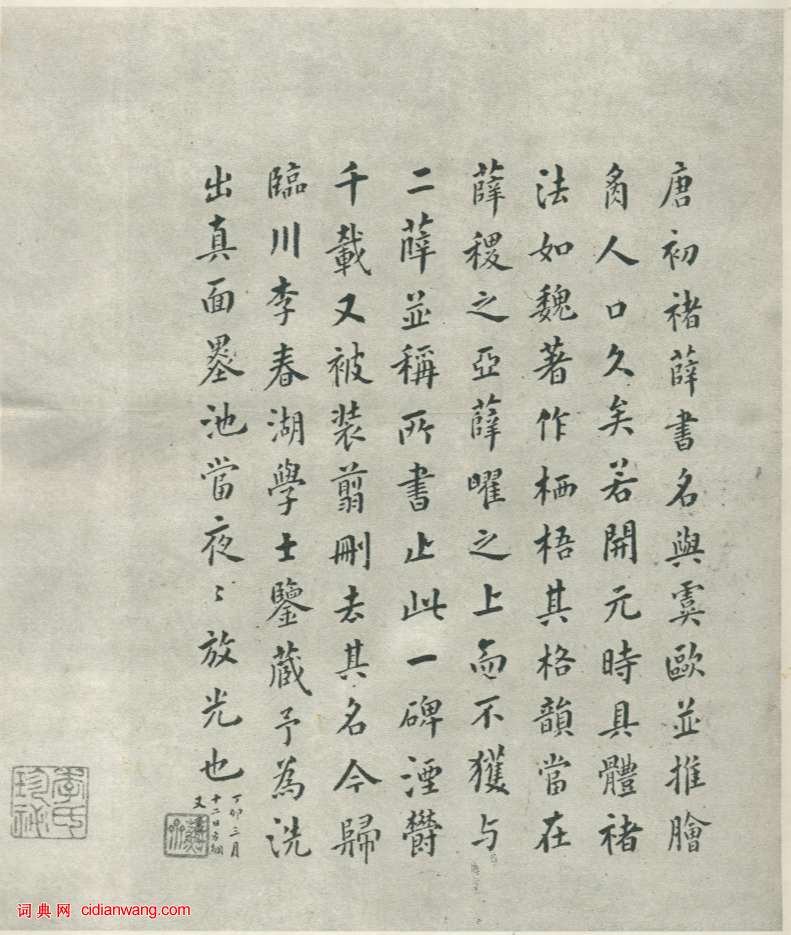 唐初褚薛書名與虞歐並推膾
炙人口久矣若開元時具體褚
法如魏著作栖梧其格韻當在
薛稷之亞薛曜之上而不獲与
二薛並稱所書止此一碑湮欝
千載又被装翦刪去其名今歸
臨川李春湖學士鑒藏予為洗
出真面墨池當夜〻放光也
丁卯三月
十二日方綱
又
蘇齋
李氏
珍祕
词典网 cidianwang.com